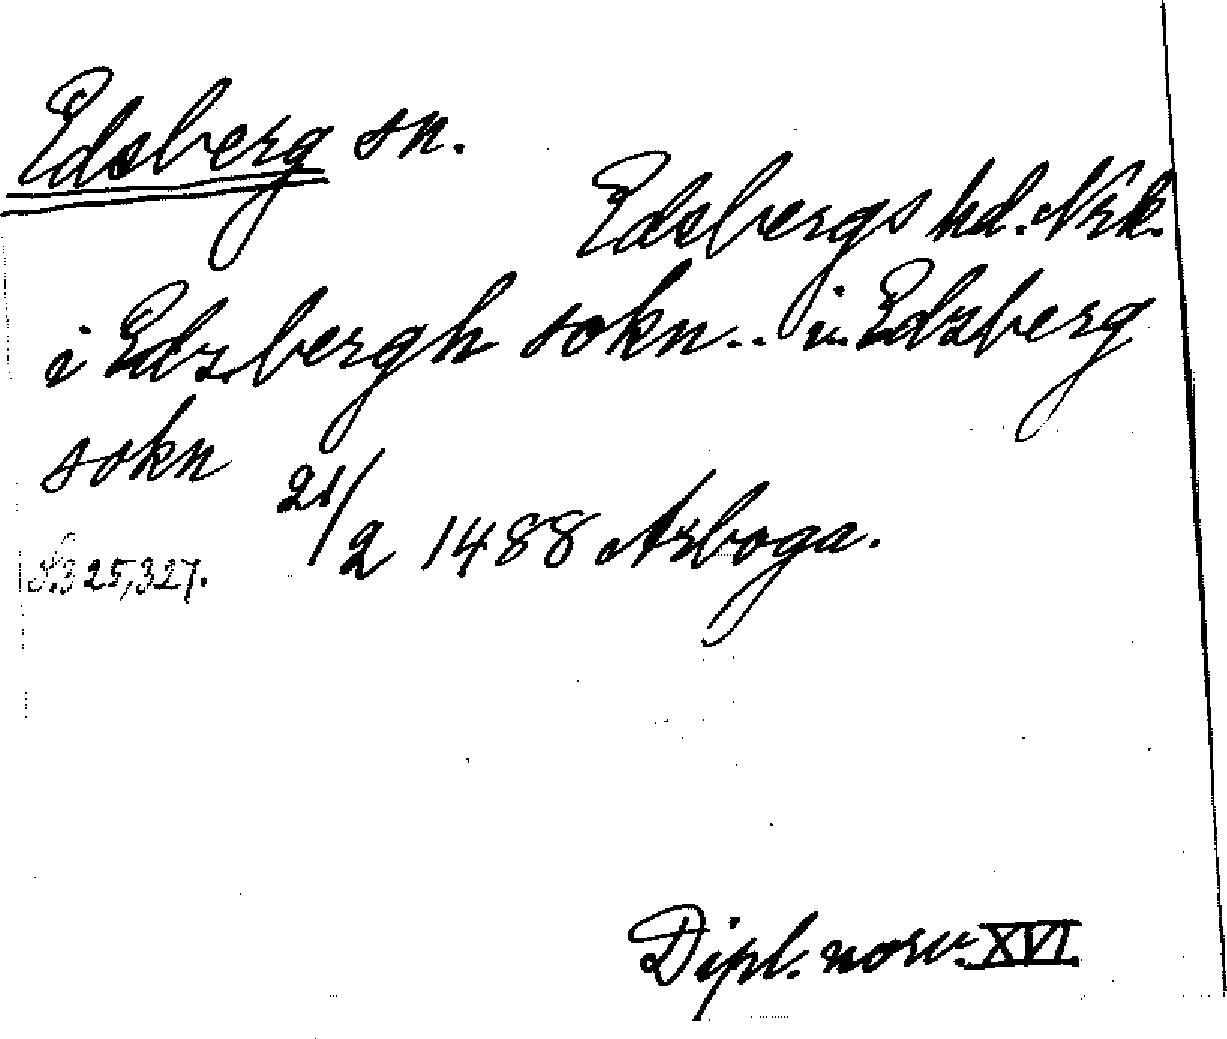 Edsberg sn.
Edsbergs hd. Nrk.
i Edzbergh sokn.. i Edzberg
sokn
21/2 1488 Arboga.
S.325,327.
Dipl. norv. XVI.